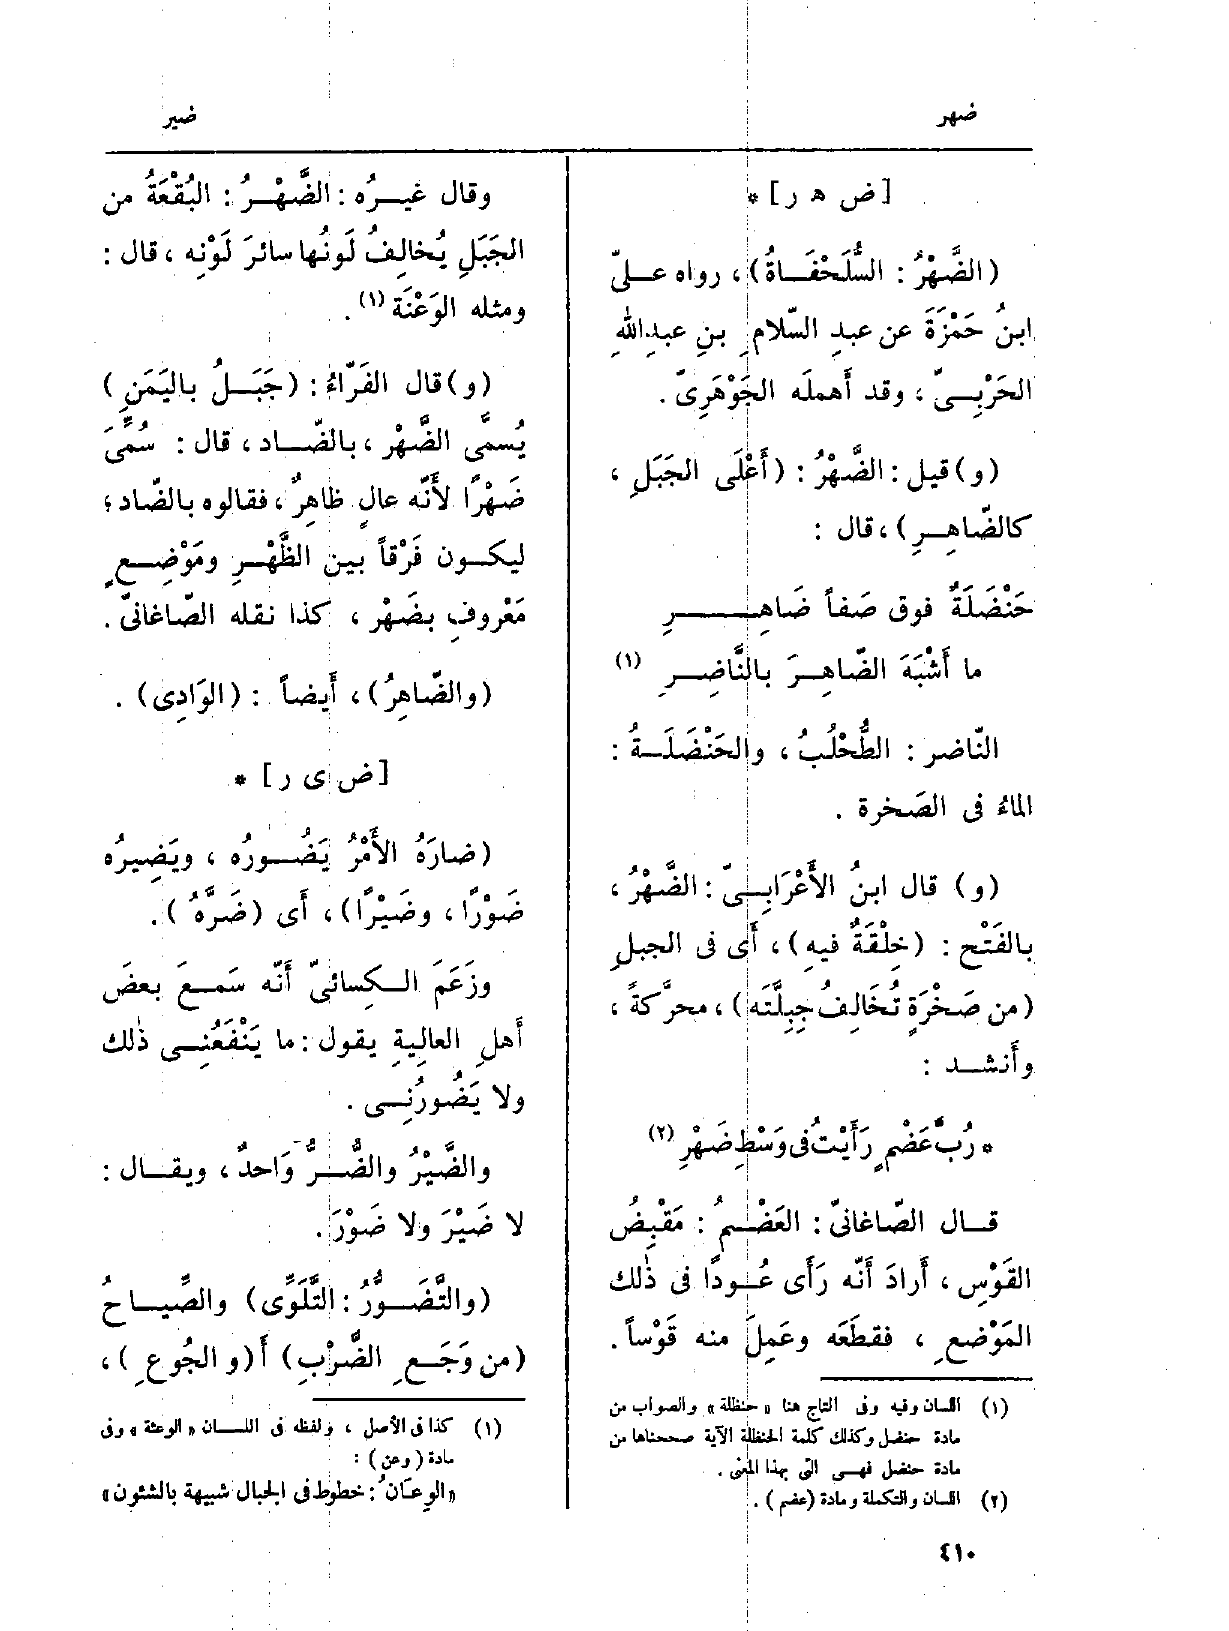 ضهر
ضير
[ ض ه ر ] *
(الضَّهْرُ : السُّلَحْفَاةُ) ، رواه علىّ
ابنُ حَمْزَةَ عن عبدِ السّلامِ بنِ عبدِ الله
الحَرْبِىّ ، وقد أهمله الجَوْهَرِىّ .
(و) قيل : الضَّهْرُ : (أَعْلَى الجَبَلِ ،
كالضّاهِرِ) ، قال :
حَنْضَلَةٌ فوق صَفاً ضَاهِرِ
ما أَشْبَهَ الضّاهِرَ بالنَّاضِرِ (١)
النّاضر : الطُّحْلُبُ ، والحَنْضَلَةُ :
الماءُ فى الصَخرة .
(و) قال ابنُ الأَعْرَابِىّ : الضَّهْرُ ،
بالفَتْح : (خِلْقَةٌ فيه) ، أَى فى الجبلِ
(من صَخْرَةٍ تُخَالِفُ جِبِلَّتَه) ، محرَّكةً ،
وأَنشد :
* رُبَّ عَضْمٍ رَأَيْتُ فى وَسْطِ ضَهْرِ (٢)
قال الصّاغانىّ : العَضْمُ : مَقْبِضُ
القَوْسِ ، أَرادَ أَنّه رَأَى عُودًا فى ذٰلك
المَوْضعِ ، فقطَعَه وعَمِلَ منه قَوْساً .
(١) اللسان وفيه وفى التاج هنا « حنظلة » والصواب من
مادة حنضل وكذلك كلمة الحنظلة الآية صححناها من
مادة حنضل فهى التى بهذا المعنى .
(٢) اللسان والتكملة ومادة (عضم) .
وقال غيرُه : الضَّهْرُ : البُقْعَةُ من
الجَبَلِ يُخالِفُ لَونُها سائرَ لَوْنِه ، قال :
ومثله الوَعْنَة (١) .
(و) قال الفَرّاءُ : (جَبَلُ باليَمَنِ )
يُسمَّى الضَّهْر ، بالضّاد ، قال : سُمِّىَ
ضَهْرًا لأَنّه عالٍ ظاهِرٌ ، فقالوه بالضّاد ؛
ليكون فَرْقاً بين الظَّهْرِ ومَوْضِعٍ
مَعْروفٍ بضَهْر ، كذا نقله الصّاغانىّ .
(والضّاهِرُ) ، أَيضاً : (الوَادِى) .
[ ض ى ر ] *
(ضارَهُ الأَمْرُ يَضُورُه ، ويَضِيرُه
ضَوْرًا ، وضَيْرًا) ، أَى (ضَرَّهُ ) .
وزَعَمَ الكِسائىّ أَنّه سَمعَ بعضَ
أَهلِ العالِيةِ يقول : ما يَنْفَعُنِى ذٰلك
ولا يَضُورُنِى .
والضَّيْرُ والضُّرُّ وَاحدٌ ، ويقال :
لا ضَيْرَ ولا ضَوْرَ .
(والتَّضَوُّرُ : التَّلَوِّى) والصِّيَاحُ
(من وَجَعِ الضَّرْبِ) أَ(و الجُوعِ ) ،
(١) كذا فى الأصل ، ولفظه فى اللسان « الوعثة » وفى
مادة (وعن ) :
« الوِعَان : خطوط فى الجبال شبيهة بالشئون »
٤١٠